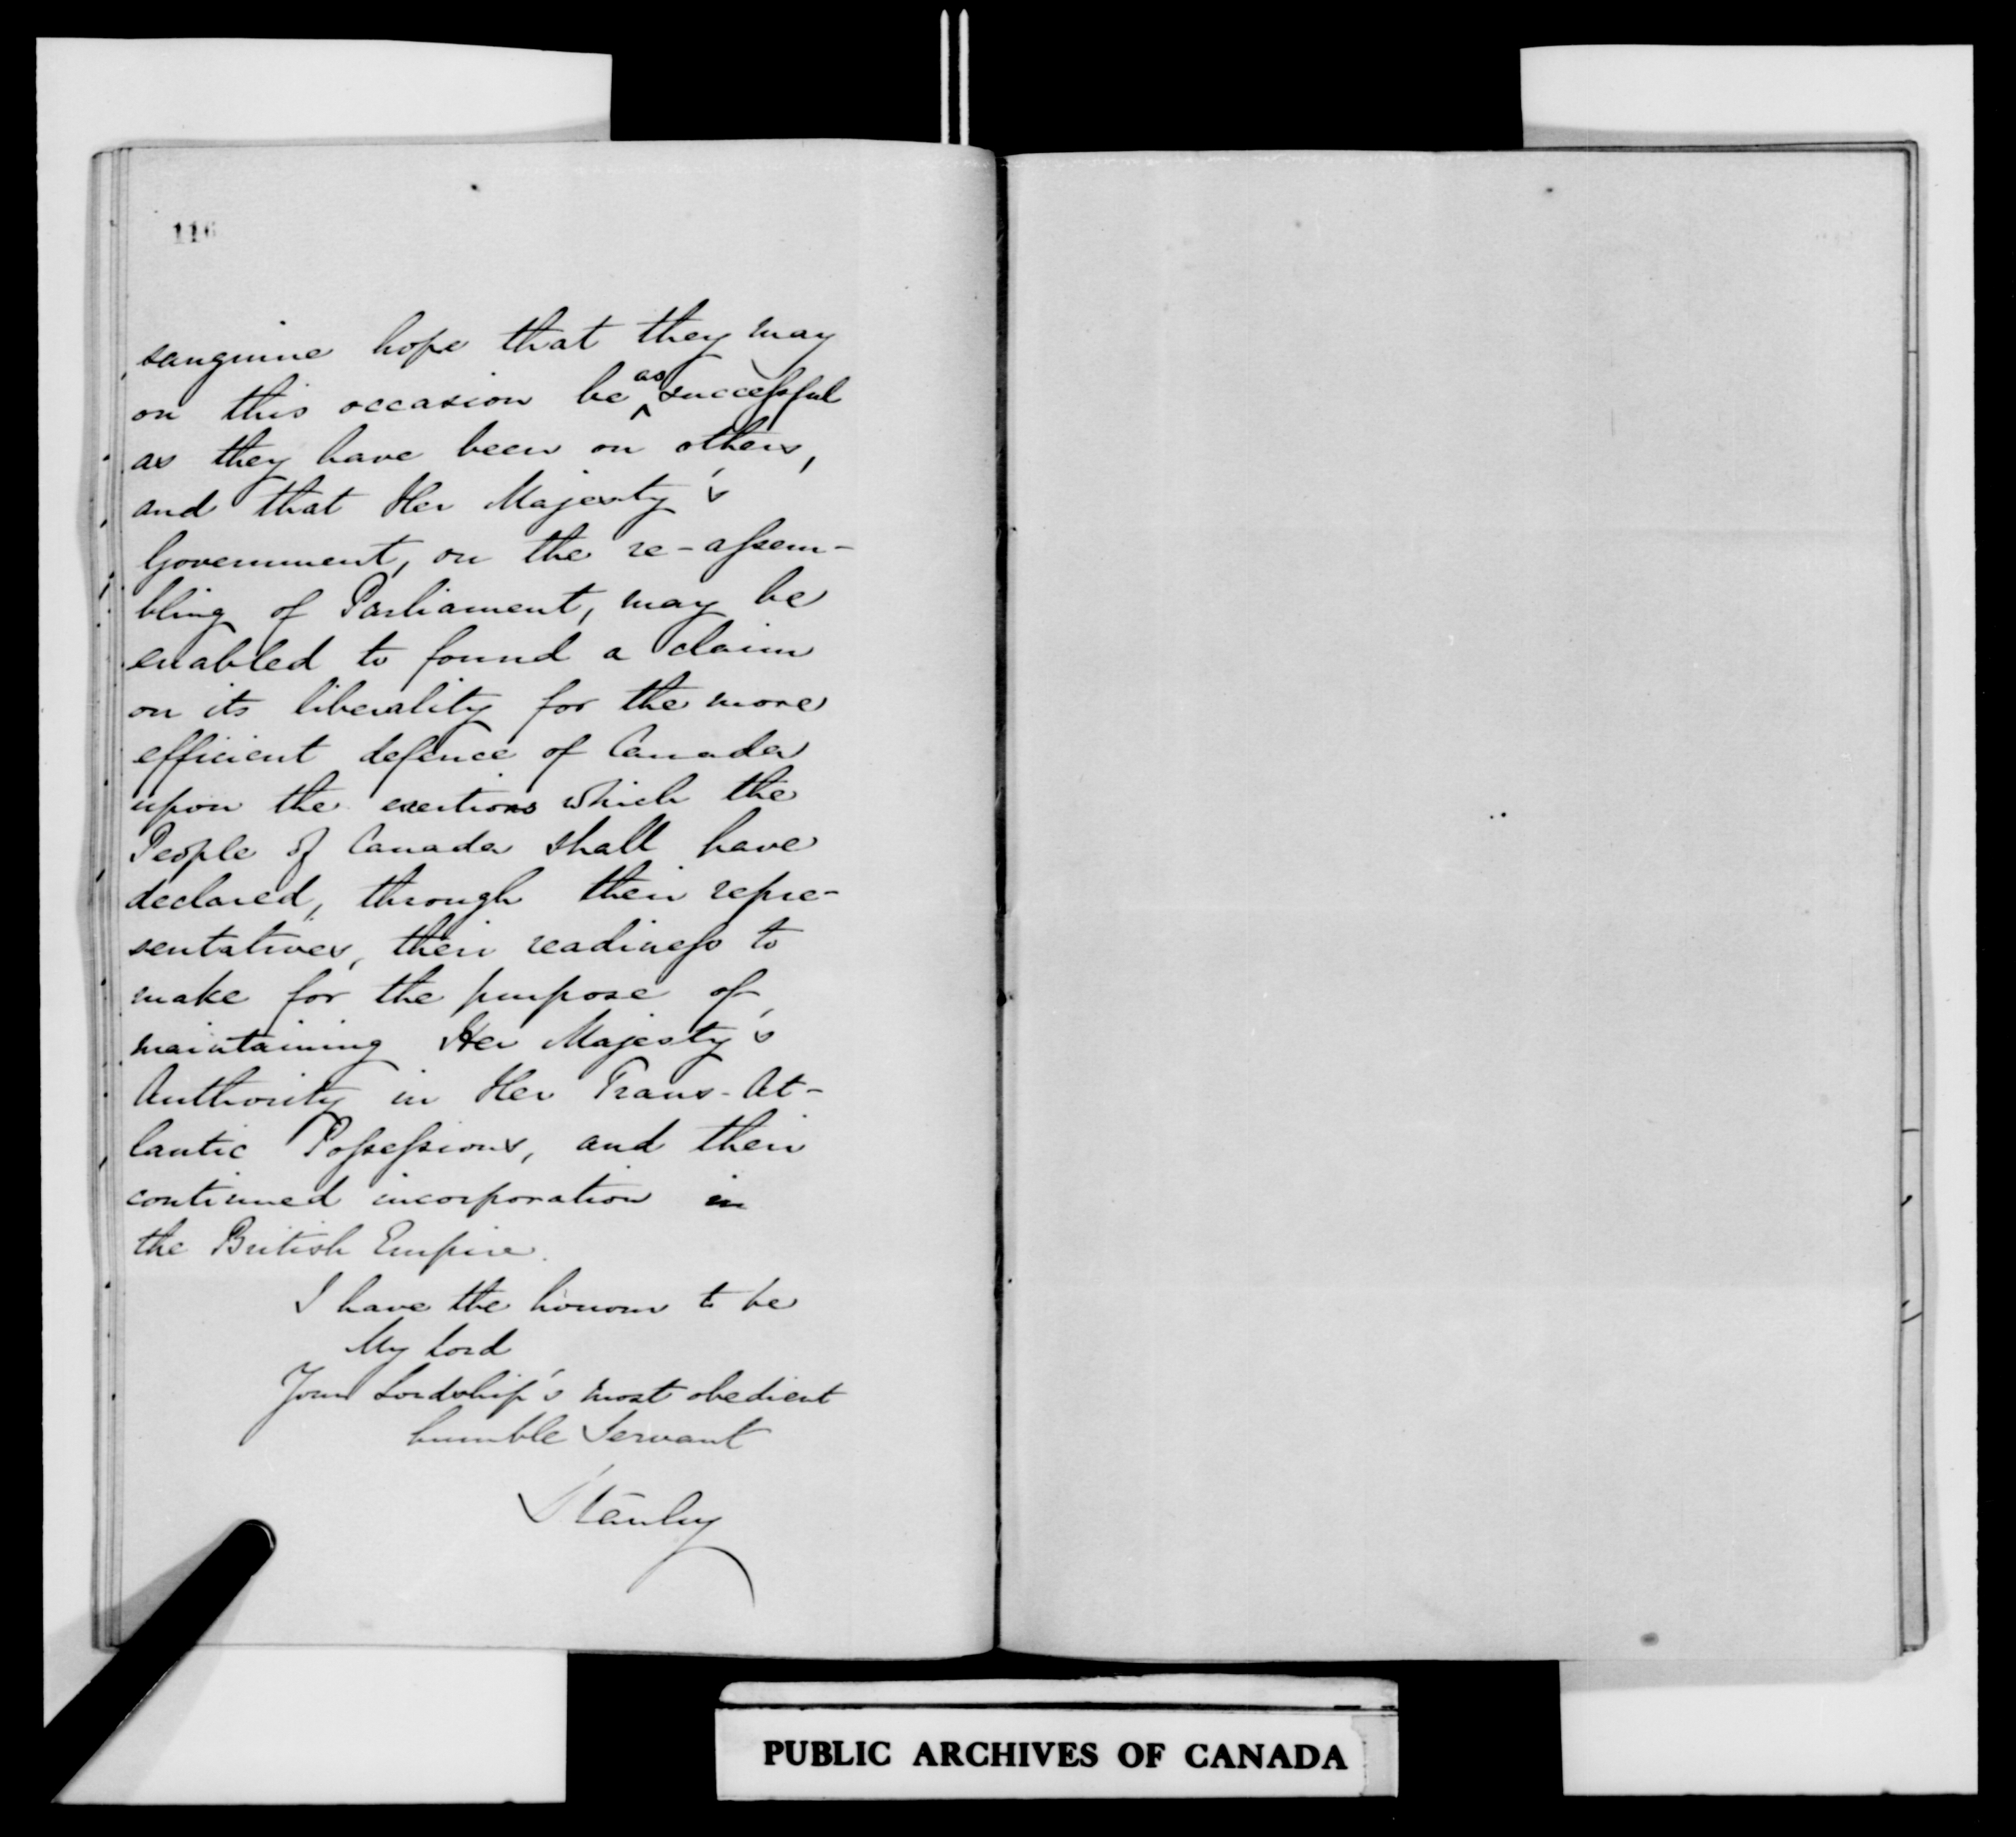 116
sanguine hope that they may
on this occasion be as successful
as they have been on others,
and that Her Majesty's
Government, on the re-assem-
bling of Parliament, may be
enabled to found a claim
on its liberality for the more
efficient defence of Canada
upon the exertions which the
People of Canada shall have
declared, through their repre-
sentatives, their readiness to
make for the purpose of
maintaining Her Majesty's
Authority in Her Trans-At-
lantic Possessions, and their
continued incorporation in
the British Empire.
I have the honour to be
My Lord
Your Lordship's most obedient
humble Servant
Stanley
PUBLIC ARCHIVES OF CANADA